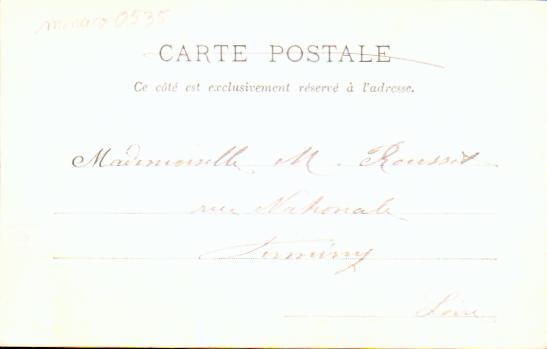 monaco 0535
CARTE POSTALE
Ce côté est exclusivement réservé à l'adresse.
Mademoiselle M. Rousset
rue Nationale
Firminy
Loire